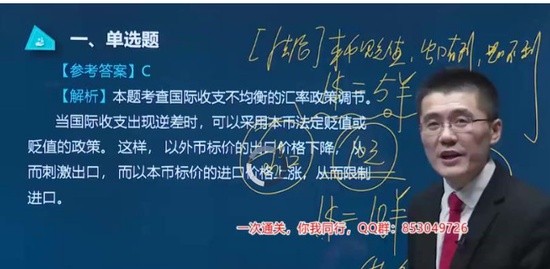 一、单选题
[结论]本币贬值，出口有利，进口不利
【参考答案】C
1$=5¥
【解析】本题考查国际收支不均衡的汇率政策调节。
当国际收支出现逆差时，可以采用本币法定贬值或
贬值的政策。 这样，以外币标价的出口价格下降，从
而刺激出口，而以本币标价的进口价格上涨，从而限制
进口。
1$=10¥
一次通关，你我同行，QQ群：853049726